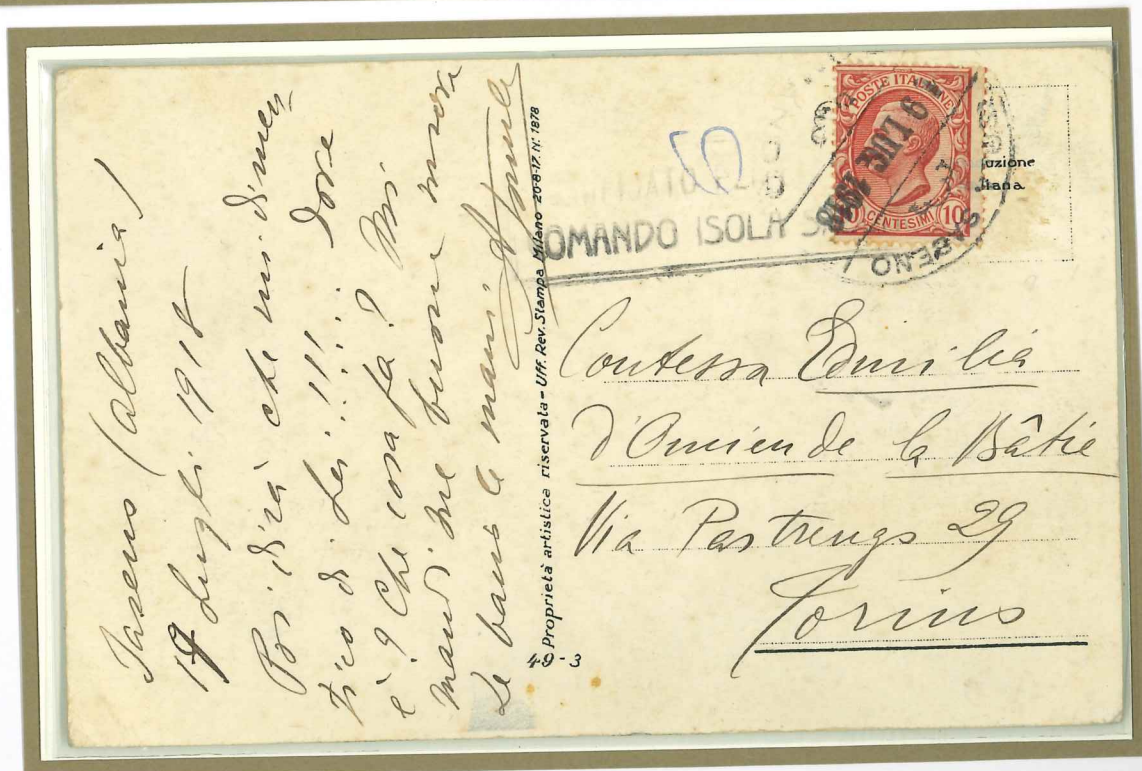 Saseno (Albania)
17 Luglio 1918
Poi dirà che mi dimen
tico di Lei!!! Dove
è? Che cosa fa? Mi
mandi sue buone nuove
Le bacio le mani
Proprietà artistica riservata - Uff. Rev. Stampa Milano 20-8-17. N. 1878
49-3
COMANDO ISOLA S
POSTE ITALIANE
CENTESIMI 10
SASENO
uzione
liana
Contessa Emilia
d'Oncien de la Bâtie
Via Pastrengo 29
Torino